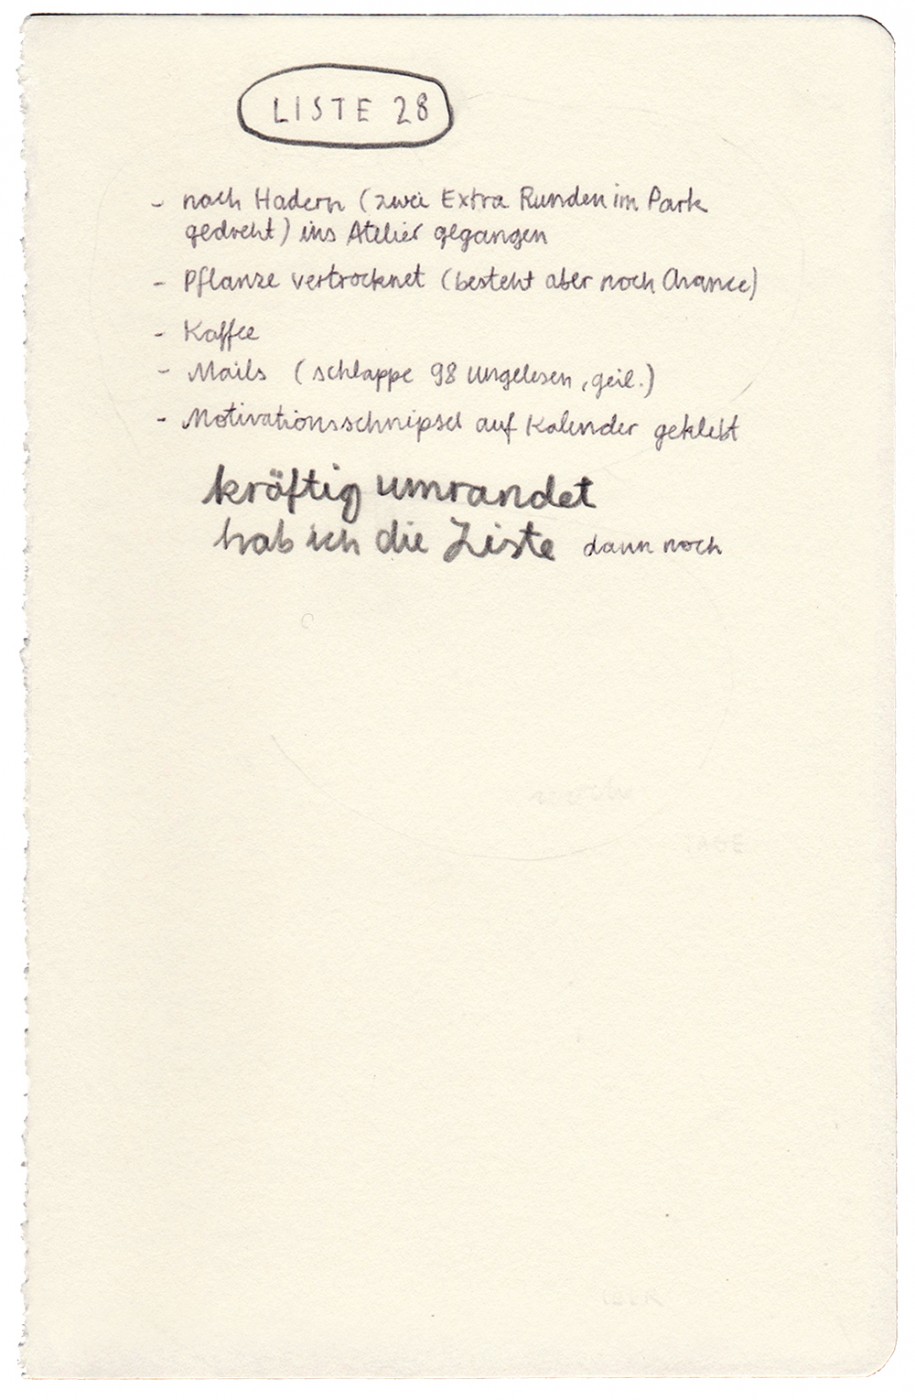 LISTE 28
- nach Hadern (zwei Extra Runden im Park
gedreht) ins Atelier gegangen
- Pflanze vertrocknet (besteht aber noch Chance)
- Kaffee
- Mails (schlappe 98 ungelesen, geil.)
- Motivationsschnipsel auf Kalender geklebt
kräftig umrandet
hab ich die Liste dann noch